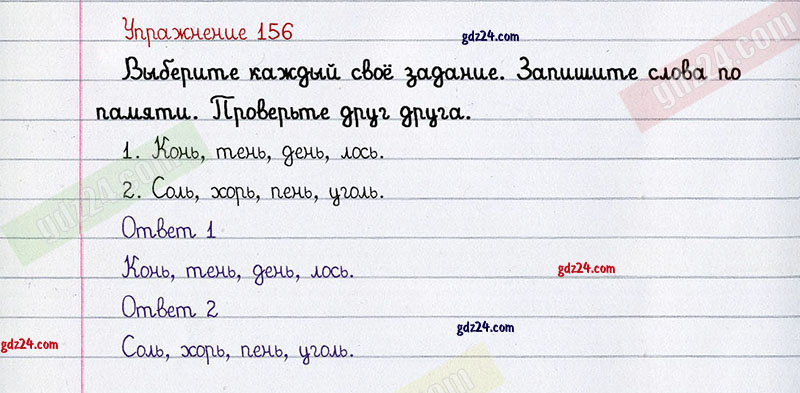 Упражнение 156
gdz24.com
gdz24.com
Выберите каждый своё задание. Запишите слова по
памяти. Проверьте друг друга.
1. Конь, тень, день, лось.
gdz24.com
2. Соль, хорь, пень, уголь.
Ответ 1
Конь, тень, день, лось.
gdz24.com
Ответ 2
gdz24.com
gdz24.com
Соль, хорь, пень, уголь.
gdz24.com